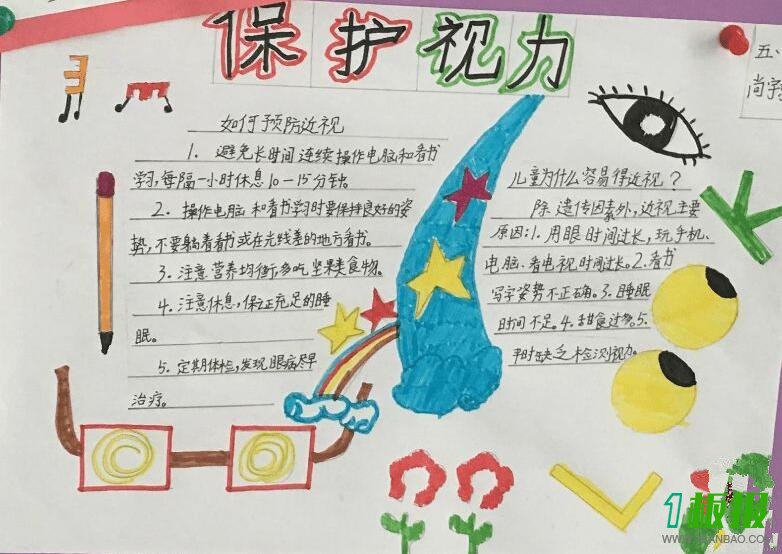 保护视力
五、
尚
如何预防近视
1. 避免长时间连续操作电脑和看书
学习,每隔一小时休息10-15分钟。
2. 操作电脑和看书学习时要保持良好的姿
势,不要躺着看书或在光线差的地方看书。
3. 注意营养均衡,多吃坚果类食物。
4. 注意休息,保证充足的睡
眠。
5. 定期体检,发现眼病尽早
治疗。
儿童为什么容易得近视?
除遗传因素外,近视主要
原因:1.用眼时间过长,玩手机、
电脑、看电视时间过长。2.看书
写字姿势不正确。3.睡眠
时间不足。4.甜食过多。5.
平时缺乏检测视力。
1板报
WWW.1BANBAO.COM